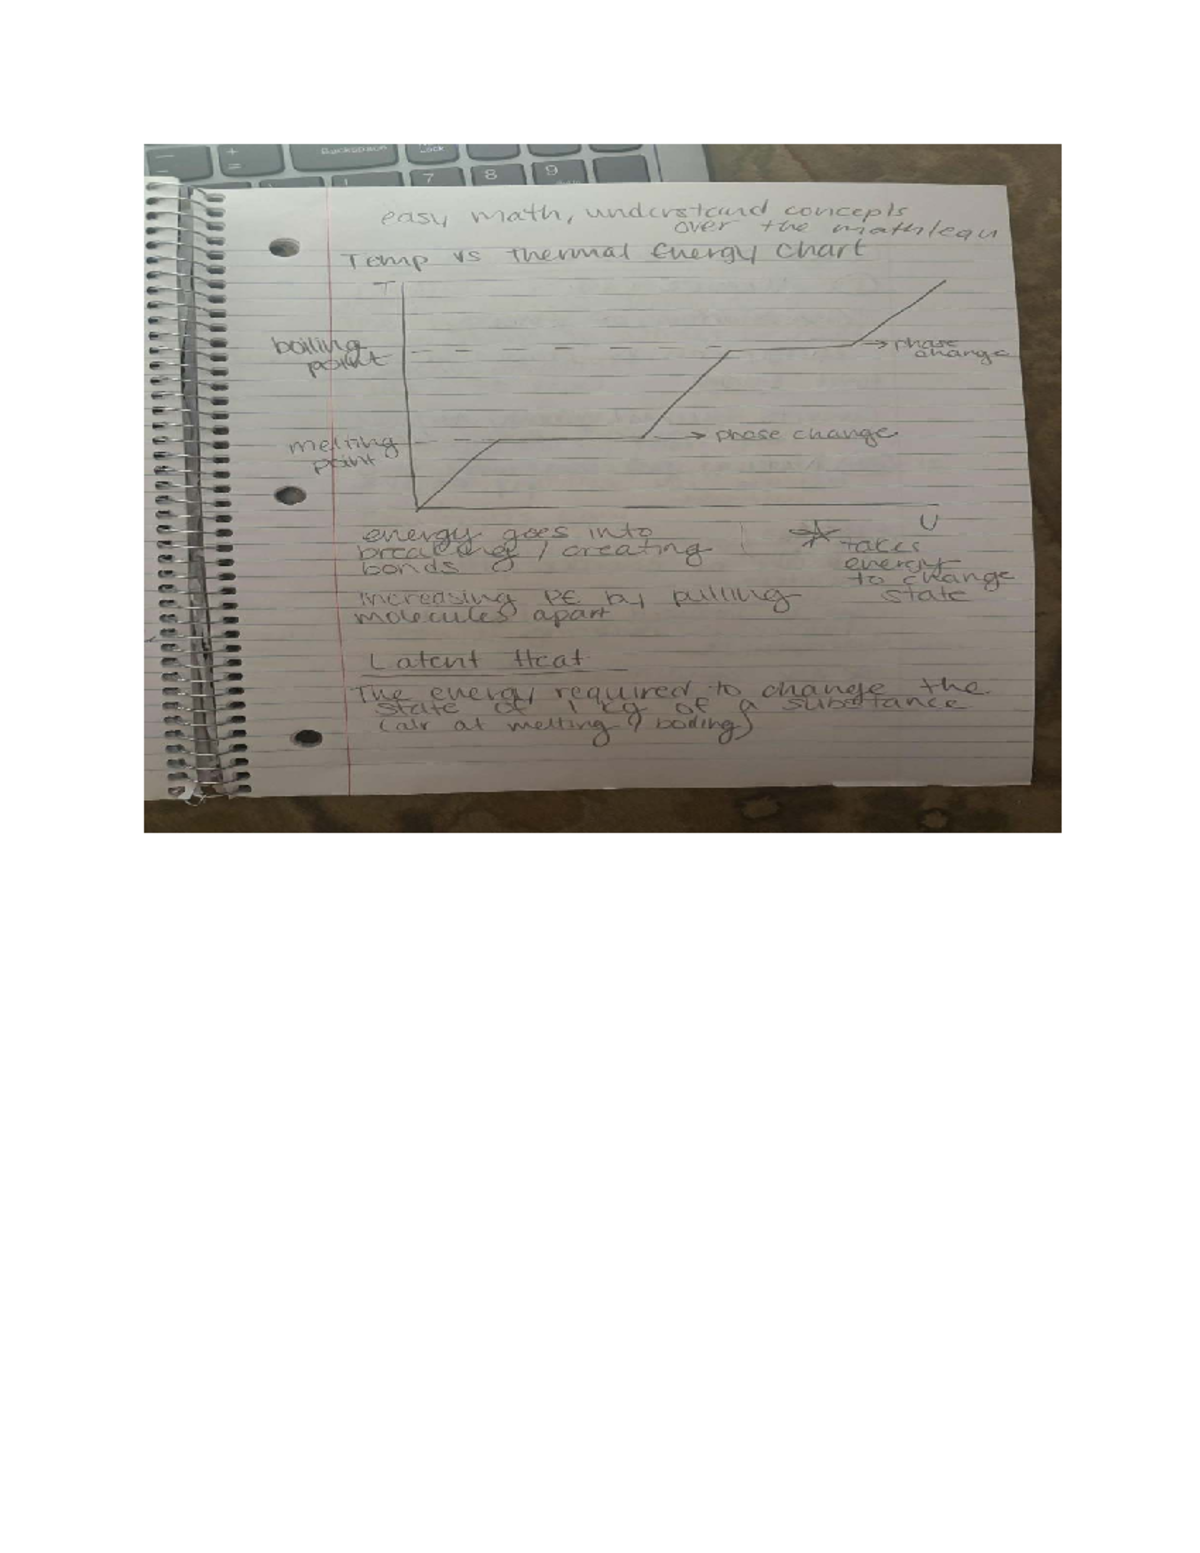 Backspace
Lock
7 8 9
easy math, understand concepts
over the math/equ
Temp vs thermal Energy Chart
T
boiling
point
phase
change
melting
point
phase change
U
energy goes into
breaking / creating
bonds
increasing PE by pulling
molecules apart
takes
energy
to change
state
Latent Heat
The energy required to change the
state of 1 kg of a substance
at melting / boiling)